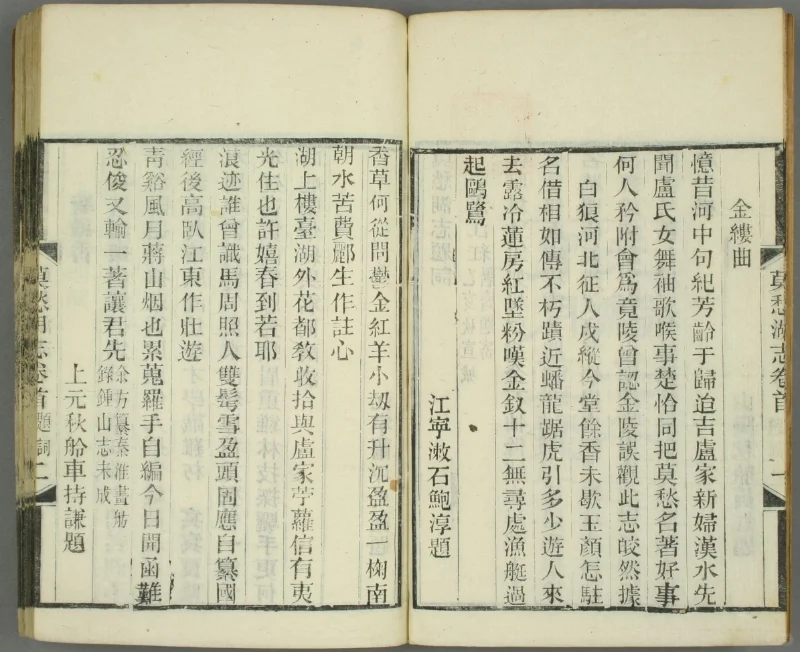 莫愁湖志卷首
一
金縷曲
憶昔河中句紀芳齡于歸迨吉盧家新婦漢水先
聞盧氏女舞袖歌喉事楚恰同把莫愁名著好事
何人矜附會爲竟陵曾認金陵誤觀此志皎然據
白狼河北征人戍縱今堂餘香未歇玉顏怎駐
名借相如傳不朽蹟近蟠龍踞虎引多少遊人來
去露冷蓮房紅墜粉嘆金釵十二無尋處漁艇過
起鷗鷺
江寧漱石鮑淳題
香草何從問鬱金紅羊小刼有升沉盈盈一掬南
朝水苦費酈生作註心
湖上樓臺湖外花都教收拾與盧家苧蘿信有夷
光住也許嬉春到若耶
浪迹誰曾識馬周照人雙鬢雪盈頭圖應自纂國
經後高臥江東作壯遊
靑谿風月蔣山烟也累蒐羅手自編今日開函難
忍俊又輸一著讓君先余方纂秦淮畫舫
錄鍾山志未成
上元秋舲車持謙題
莫愁湖志卷首題詞二